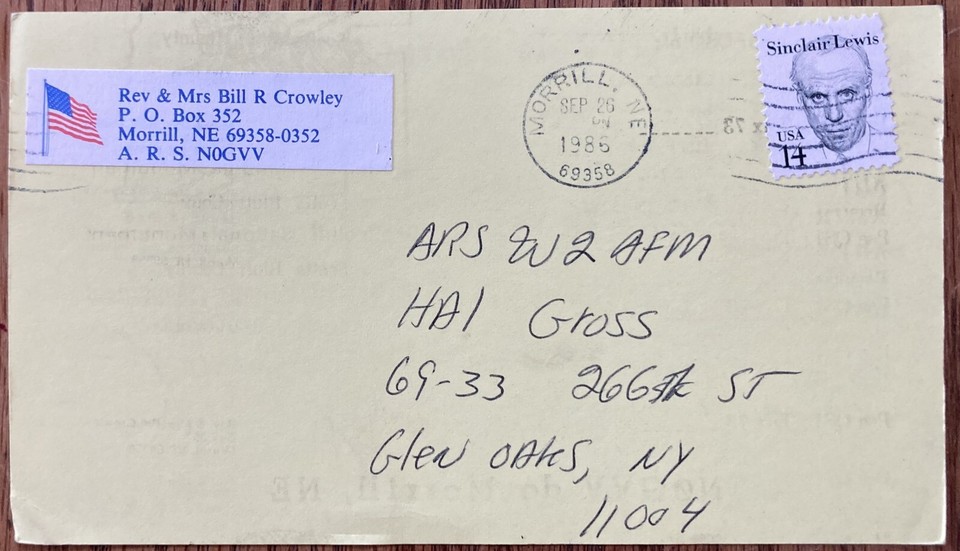 Rev & Mrs Bill R Crowley
P. O. Box 352
Morrill, NE 69358-0352
A. R. S. N0GVV
MORRILL, NE
SEP 26
PM
1986
69358
Sinclair Lewis
USA
14
ARS W2AFM
HAl Gross
69-33 266th ST
Glen OAks, NY
11004